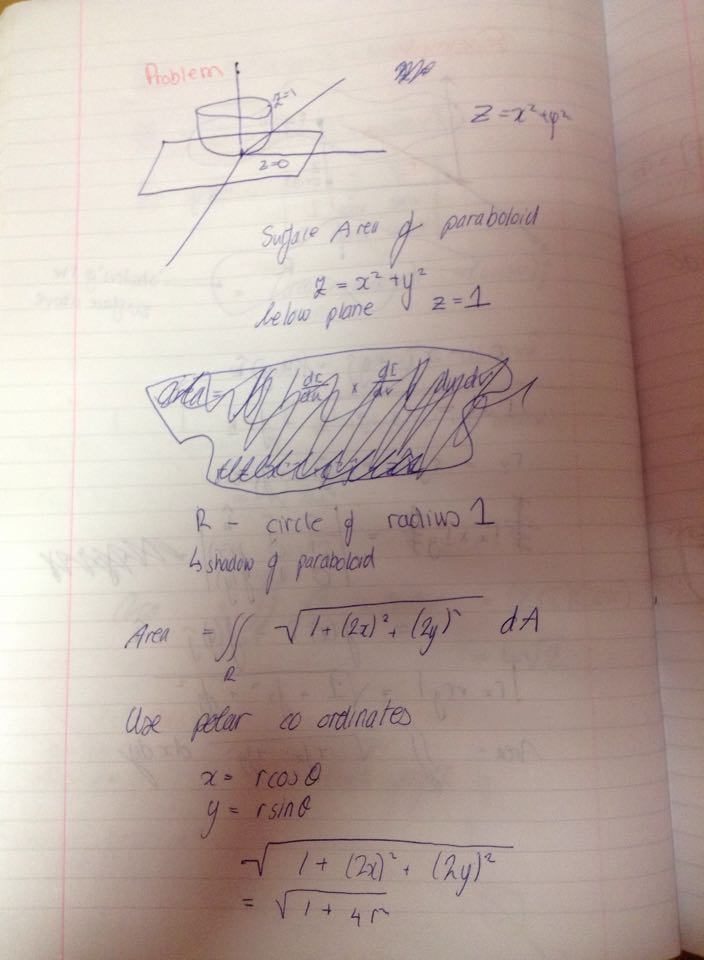 Problem
z=1
z=0
Z = x² + y²
Surface Area of paraboloid
z = x² + y²
below plane z = 1
area = dr/du × dr/dv du dv
R - circle of radius 1
↳ shadow of paraboloid
Area = ∬_R √(1 + (2x)² + (2y)²) dA
Use polar co ordinates
x = rcosθ
y = rsinθ
√(1 + (2x)² + (2y)²)
= √(1 + 4r²)